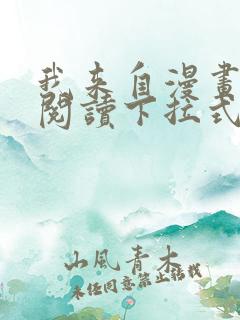 我来自漫畫
閱讀下拉式
山風青木
未经同意禁止转载